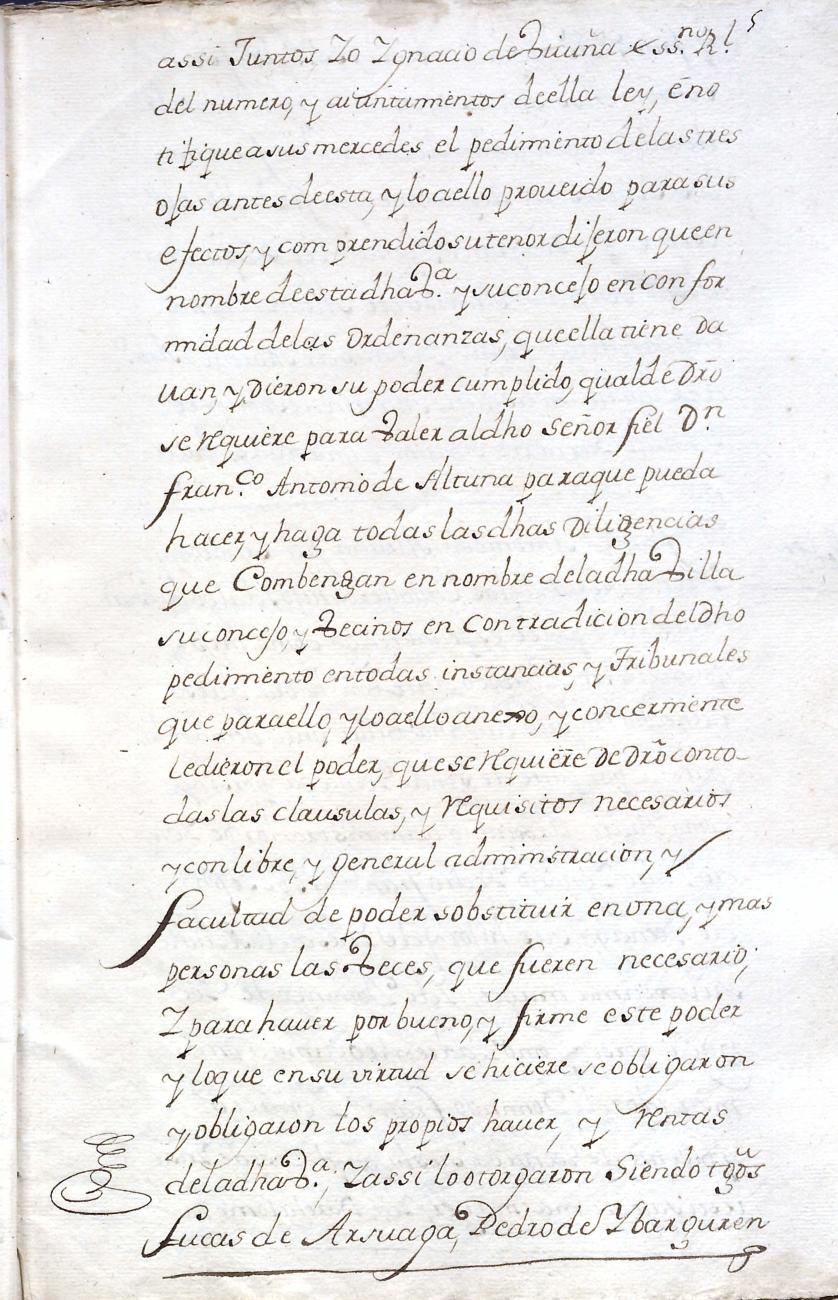 5
assi Juntos Yo Ygnacio de Vicuña essno. Rl.
del numero, y aiuntamientos de ella ley, é no
tifique a sus mercedes el pedimento de las tres
ojas antes de esta, y lo aello proveido para sus
efectos, y comprendido su tenor dijeron que en
nombre de esta dha Va. y su concejo en confor
midad de las Ordenanzas, que ella tiene Da
uan, y Dieron su poder cumplido, qual de Dro
se requiere para Valer al dho Señor fiel Dn.
Franco. Antonio de Altuna para que pueda
hacer, y haga todas las dhas Diligencias
que Combengan en nombre de la dha Villa
su concejo, y Vecinos en Contradicion del Dho
pedimiento en todas instancias, y Tribunales
que para ello, y lo aello anexo, y concerniente
le dieron el poder, que se requiere De Dro con to
das las clausulas, y requisitos necesarios
y con libre, y general administracion, y
facultad de poder sobstituir en una, y mas
personas las Veces, que fueren necesario;
Y para hauer por bueno, y firme este poder
y lo que en su virtud se hiciere se obligaron
y obligaron los propios hauer, y rentas
de la dha Va.; Y assi lo otorgaron Siendo tgos
Lucas de Arsuaga, Pedro de Ybarguren